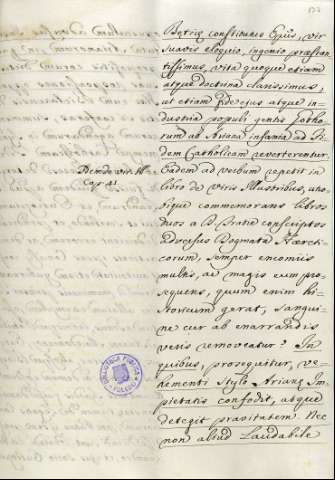 Betriæ constitutus Epus, vir
suavis eloquio, ingenio præstan-
tissimus, vita quoque etiam
atque doctrina clarissimus,
ut etiam fide ejus atque in-
dustria populi gentis Gotho-
rum ab Ariana insania ad Fi-
dem Catholicam reverterentur.
Eadem ad verbum repetit in
libro de Viris Illustribus, ubi
commemorans libros
duos a conscriptos
adversus Dogmata Hæreti-
corum, semper encomiis
multis, ac magis eum pro-
sequens, quum enim hi-
storicum gerat, sangui-
ne cur ab enarrandis
veris removeatur? In
quibus, prosequitur, ve-
hementi stylo Arianæ Im-
pietatis confodit, atque
detegit pravitatem. Nec
non aliud Laudabile
De vir. Ill.
Cap. 41
BIBLIOTECA PUBLICA
TOLEDO